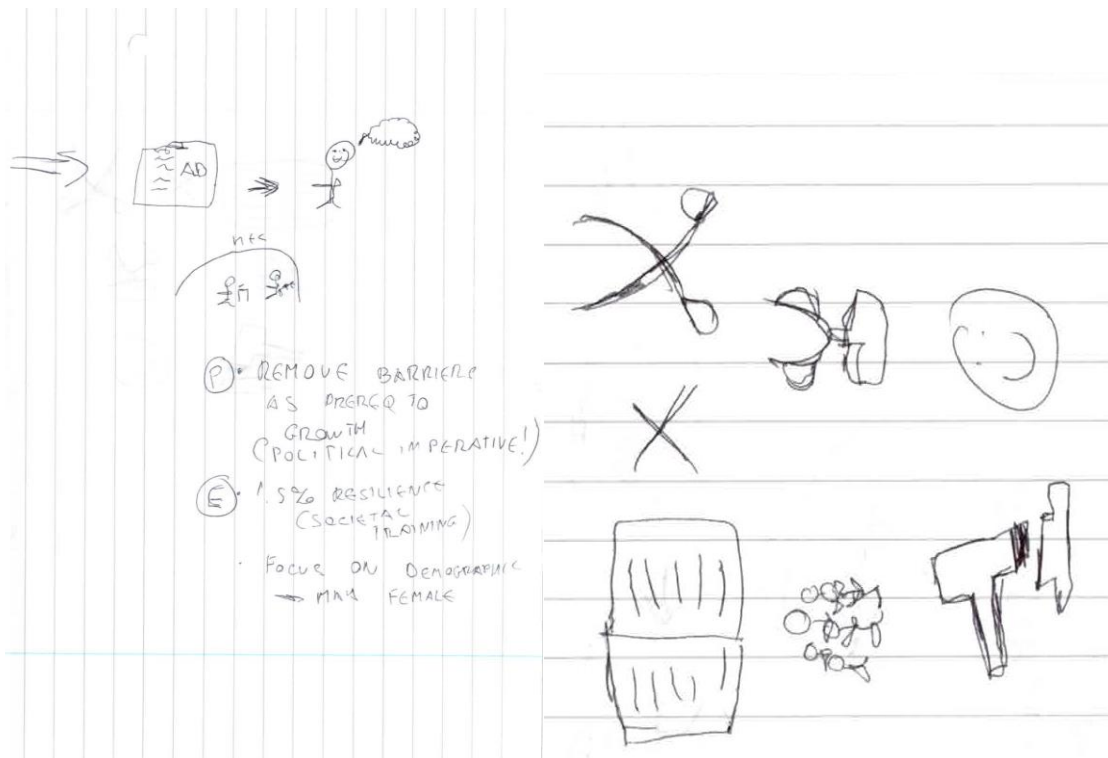 AD
P • REMOVE BARRIERS
AS PREREQ TO
GROWTH
(POLITICAL IMPERATIVE!)
E • 1.5% RESILIENCE
(SOCIETAL
TRAINING)
• FOCUS ON DEMOGRAPHIC
FEMALE